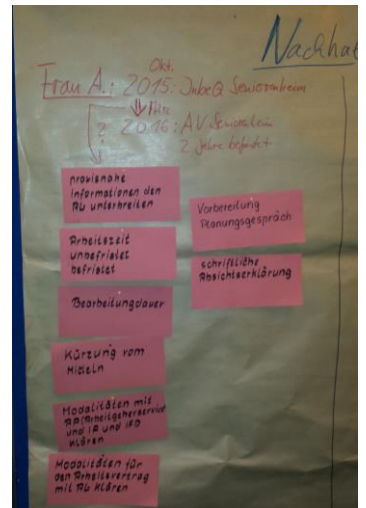 Nachha
Okt.
Frau A.: 2015: InbeQ Seniorenheim
März
? 2016: AV Seniorenheim
2 Jahre befristet
praxisnahe
Informationen den
AG unterbreiten
Arbeitszeit
unbefristet
befristet
Bearbeitungdauer
Kürzung vom
Mitteln
Modalitäten mit
AA/Arbeitgeberservice
und IA und IFD
klären
Modalitäten für
den Arbeitsvertrag
mit AG klären
Vorbereitung
Planungsgespräch
schriftliche
Absichtserklärung